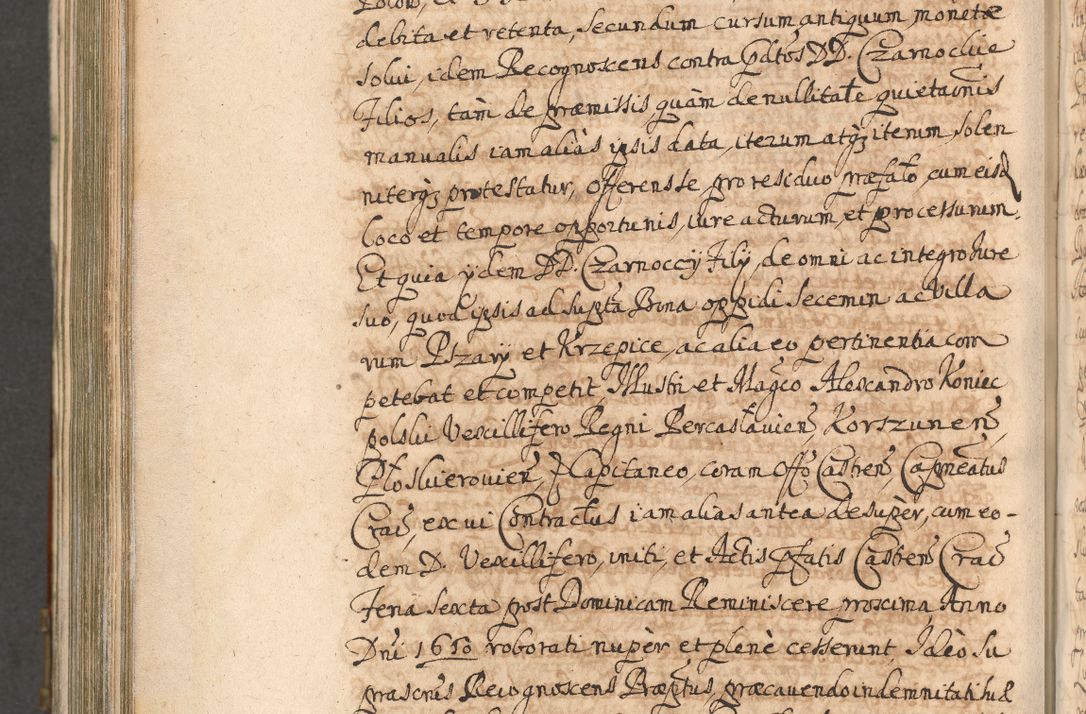 debita et retenta, secundum cursum antiquum monetæ
solui, idem Recognoscens contra pdtos DD. Czarnockie
Filios, tam̀ de præmissis quàm de nullitate quietaonis
manualis iam aliàs ipsis data, iterum atqз iterum solen
niterqз protestatur, offerens se pro residuo præfato, cum eisd
loco et tempore opportunis, iure acturum, et processurum.
Et quia ydem DD. Czarnoccÿ Filÿ, de omni ac integro Jure
suo, quod ipsis ad supta Bona oppidi Secemin ac Villa
rum Pzarÿ et Krzepice, ac alia eo pertinentia com
petebat et competit Illustri et Magco Alexandro Koniec
polski Vexillifero Regni Percaslavien, Korszunen,
Płoskierovien, Capitaneo, coram Offo Castren Capneatus
Crac, ex vi Contractus iam alias antea desupèr, cum eo-
dem D. Vexillifero, initi, et Actis pfatis Castren Crac
Feria Sexta post Dominicam Reminiscere proxima Anno
Dni 1650 roborati nupèr et plenè cesserunt, Ideò su
prascris Recognoscens Præptus, præcavendo indemnitati hæ